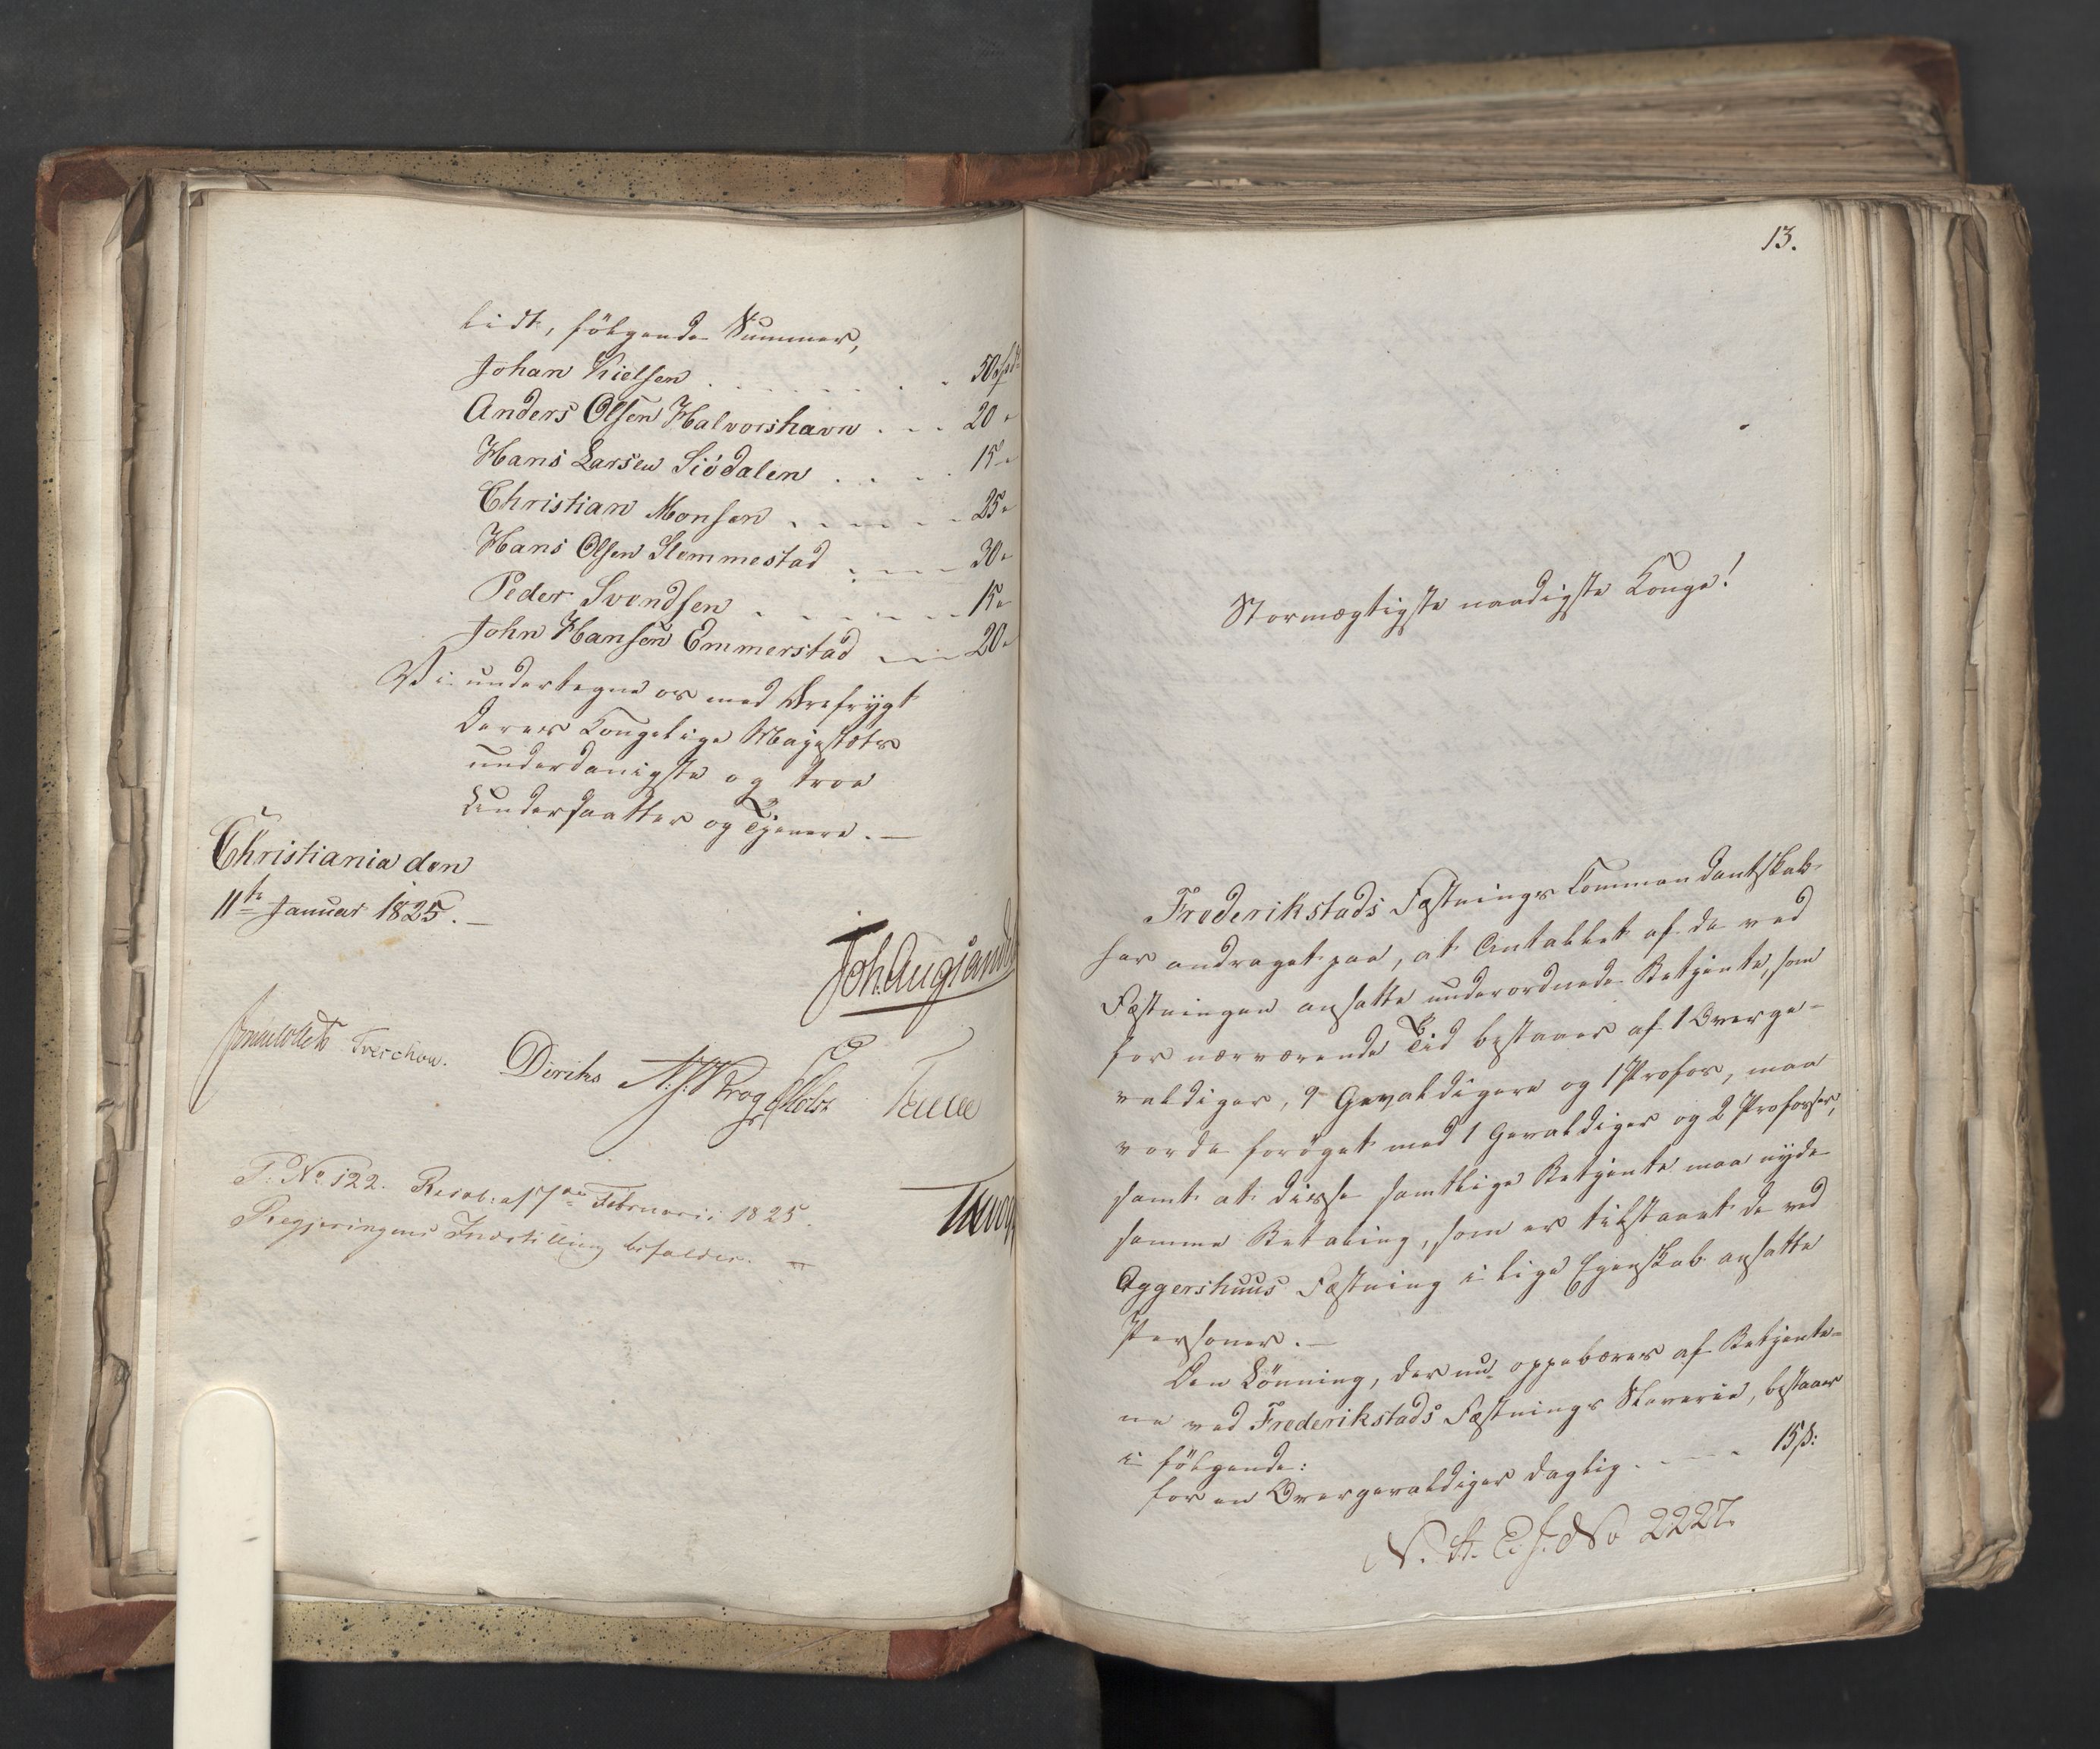 lidt, fölgende Summer,
Johan Nielsen . . . . . . 50 Spd.
Anders Olsen Halvorshavn . . . 20 "
Hans Larsen Siödalen . . . 15 "
Christian Monsen . . . . . 25 "
Hans Olsen Slemmestad . . . 30 "
Peder Svendsen . . . . . . 15 "
John Hansen Emmerstad . . . 20 "
Vi undertegne os med Ærefrygt
Deres Kongelige Majestæts
underdanigste og troe
Undersaatter og Tjenere. —
Christiania den
11te Januar 1825. —
Joh. Aug. Sand
Jonas Collett Treschow. Diriks N. J. Krog Holst Fasting
P: No 122. Resol: af 7de Februarii 1825.
Regjeringens Indstilling bifaldes. —
13.
Stormægtigste naadigste Konge!
Frederikstads Fæstnings Commandantskab
har andraget paa, at Antallet af de ved
Fæstningen ansatte underordnede Betjente, som
for nærværende Tid bestaaer af 1 Overge-
valdiger, 9 Gevaldigere og 1 Profos, maa
vorde forøget med 1 Gevaldiger og 2 Profosser,
samt at disse samtlige Betjente maa nyde
samme Betaling, som er tilstaaet de ved
Aggershuus Fæstning i lige Egenskab ansatte
Personer. —
Den Lönning, der nu oppebæres af Betjente-
ne ved Frederikstads Fæstnings Slaverie, bestaaer
i fölgende:
for en Overgevaldiger daglig . . . . 15 ß:
N. St. E. J. No 2227.